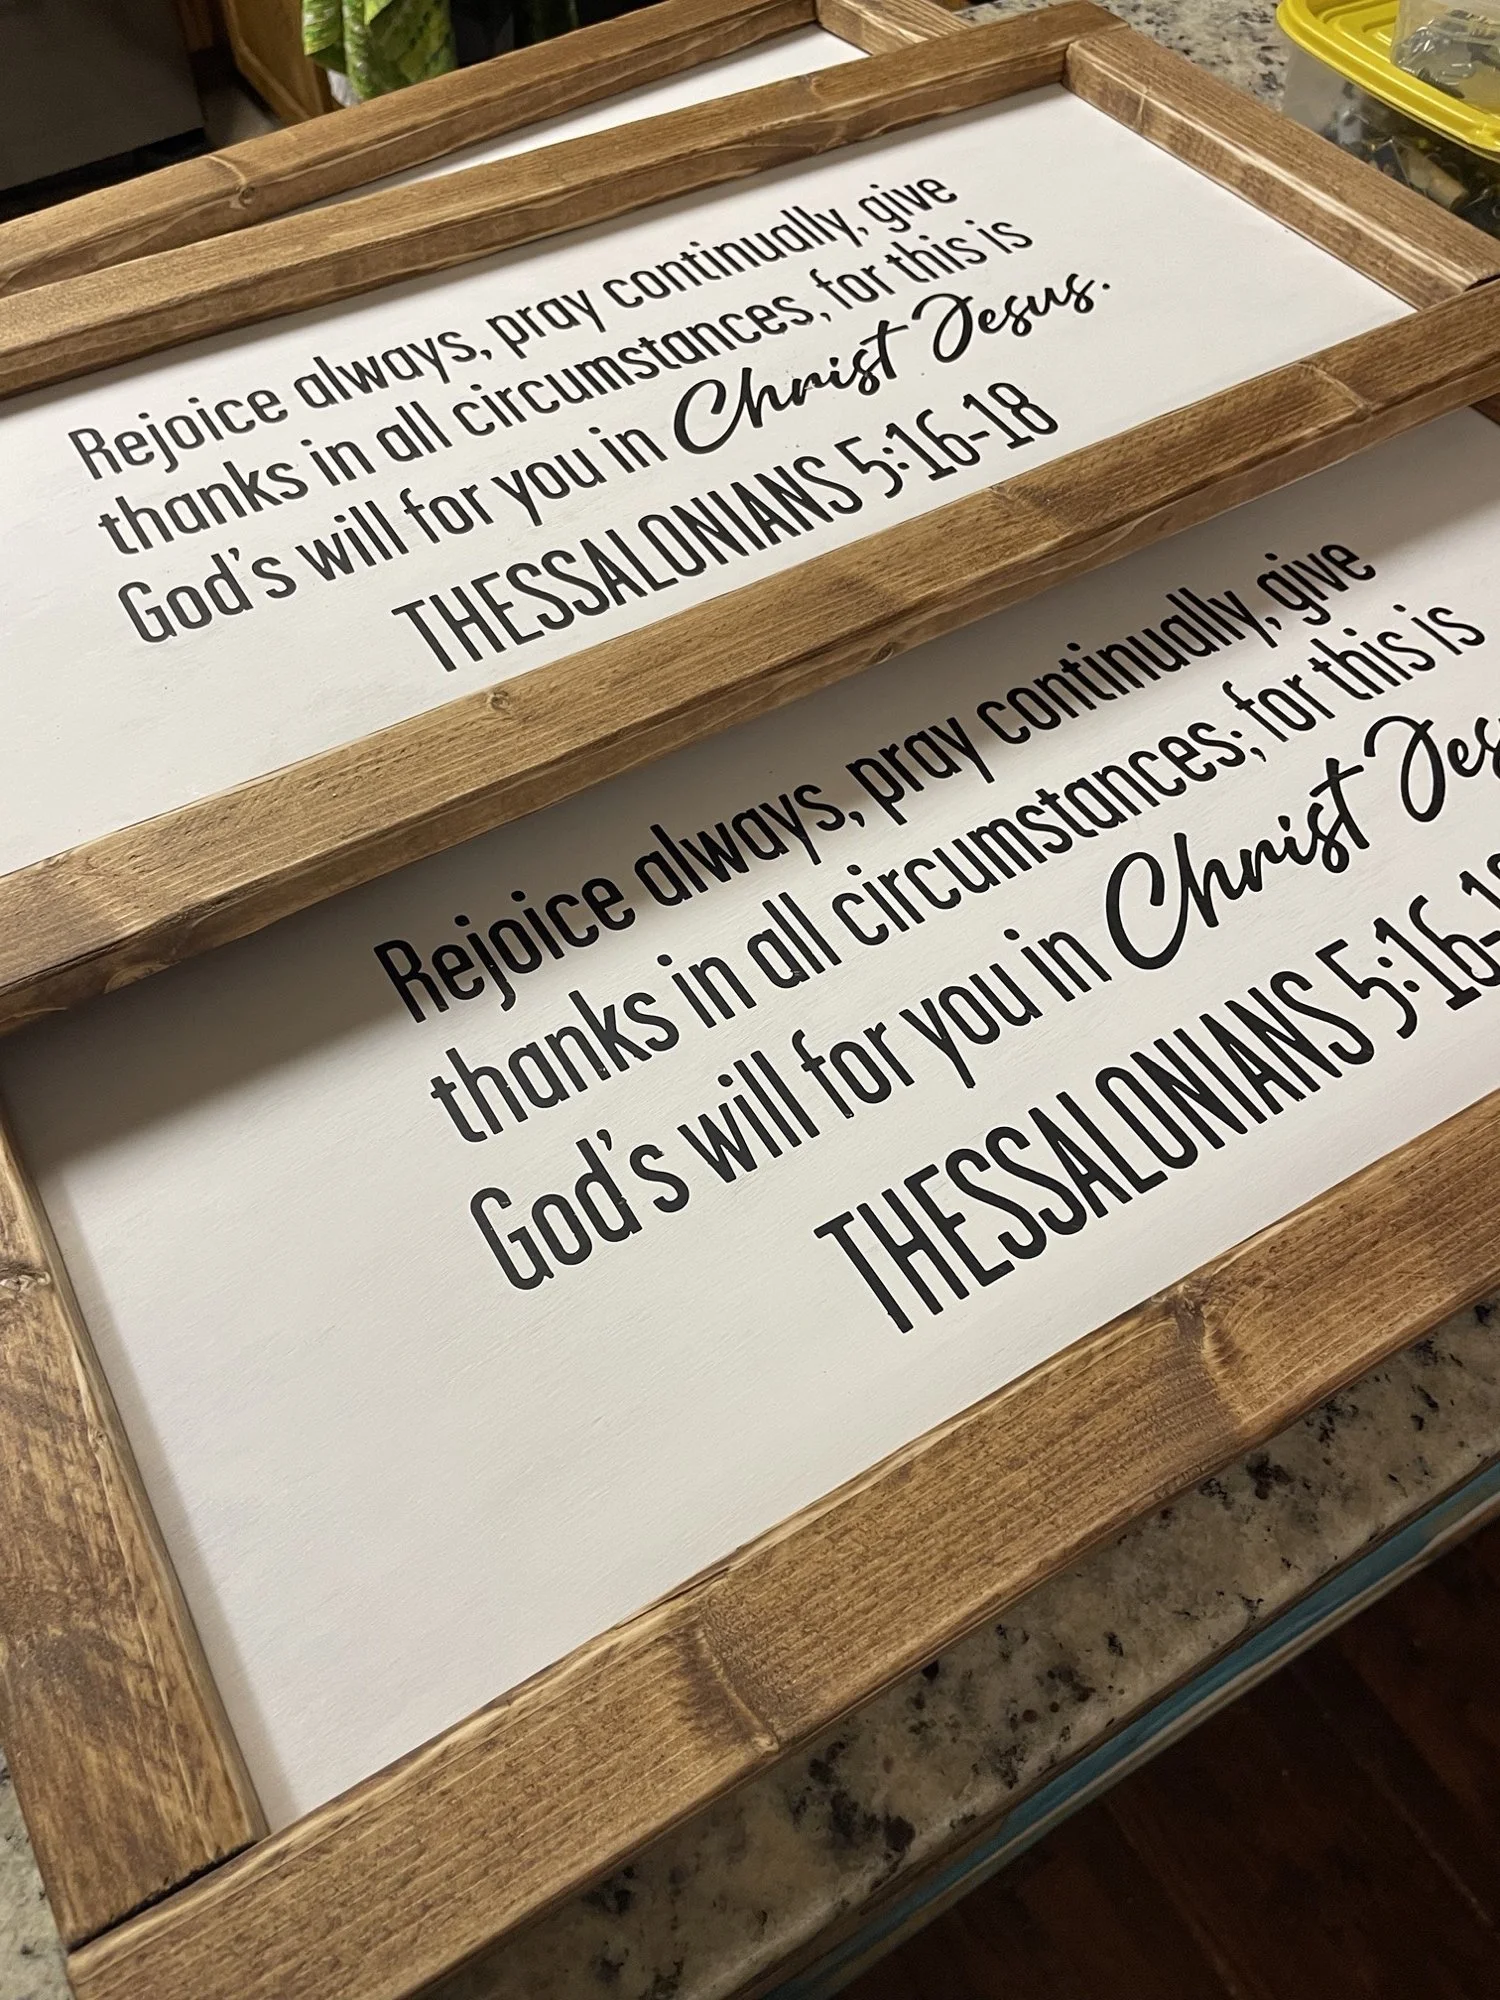 Rejoice always, pray continually, give
thanks in all circumstances, for this is
God's will for you in Christ Jesus.
THESSALONIANS 5:16-18
Rejoice always, pray continually, give
thanks in all circumstances; for this is
God's will for you in Christ Jes
THESSALONIANS 5:16-1